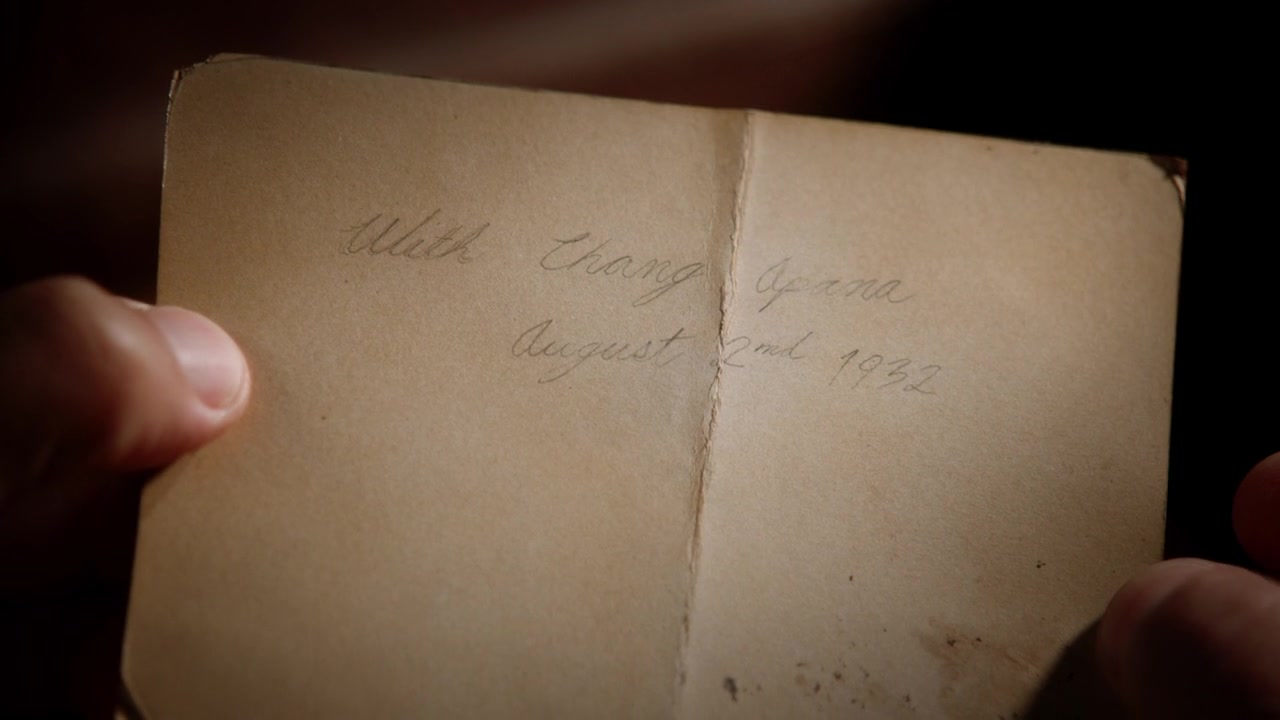 With Chang Apana
August 2nd 1932